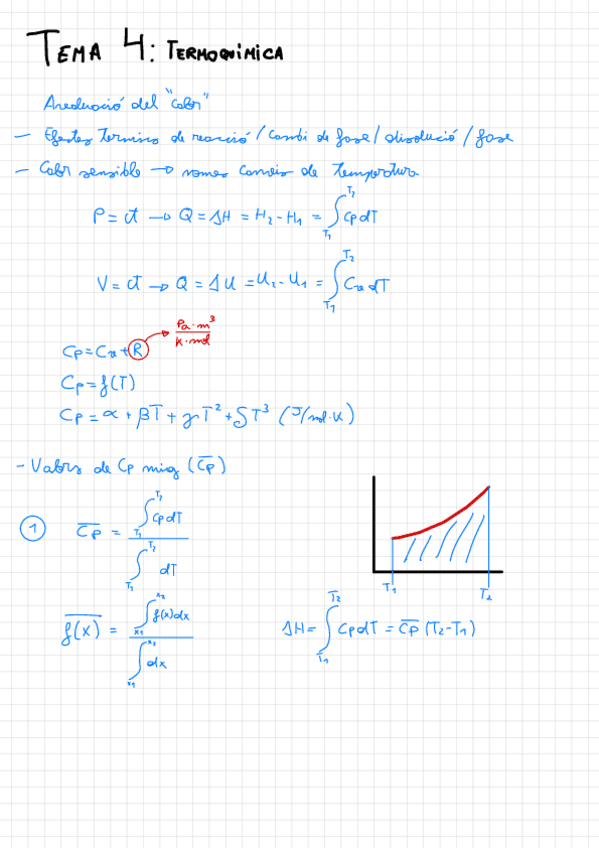 TEMA 4: TERMOQUÍMICA
Avaluació del "calor"
- Efectes termics de reacció / Canvi de fase / dissolució / fase
- Calor sensible → nomes canvis de temperatura
P = ct → Q = ΔH = H₂ - H₁ = ∫_{T₁}^{T₂} Cp dT
V = ct → Q = ΔU = U₂ - U₁ = ∫_{T₁}^{T₂} Cv dT
Cp = Cv + R → Pa·m³ / K·mol
Cp = f(T)
Cp = α + βT + γT² + δT³ (J/mol·K)
- Valors de Cp mig (C̅p̅)
① C̅p̅ = ∫_{T₁}^{T₂} Cp dT / ∫_{T₁}^{T₂} dT
T₁ T₂
f(x)̅ = ∫_{x₁}^{x₂} f(x) dx / ∫_{x₁}^{x₂} dx
ΔH = ∫_{T₁}^{T₂} Cp dT = C̅p̅ (T₂ - T₁)